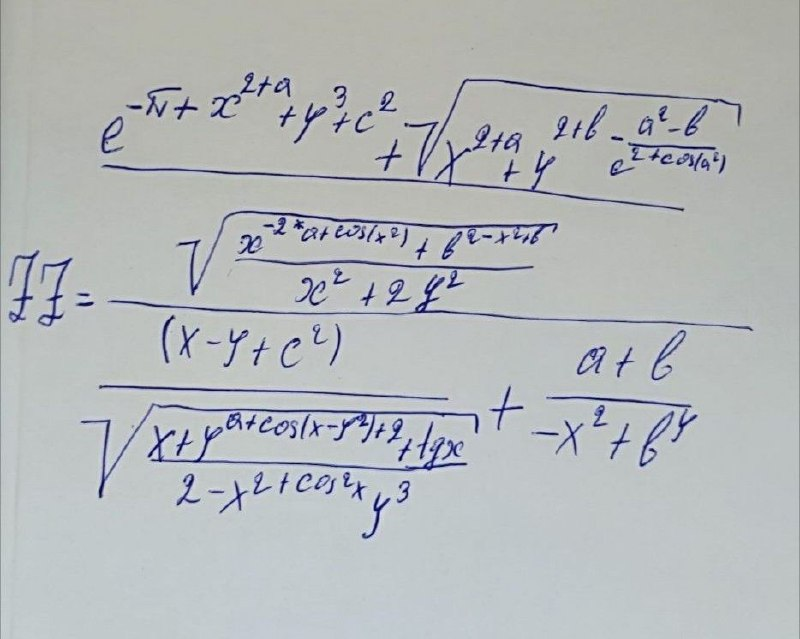 e^{-π + x^{2+a} + y^3 + c^2} + √(x^{2+a} + y^{2+b} - \frac{a^2 - b}{e^{2+cos(a^2)}})
√(\frac{x^{-2*a+cos(x^2)} + b^{2-x^2+b}}{x^2 + 2y^2})
ZZ =
(x - y + c^2)
√(\frac{x + y^{a+cos(x-y^2)+2} + tgx}{2 - x^{2+cos^2x} y^3}) + \frac{a + b}{-x^2 + b^y}